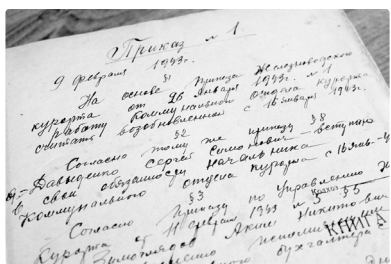 Приказ № 1.
9 февраля 1943г.
§1
На основе приказа Железноводского
курорта от 26 января 1943г. № 1
работу коммунального отдела курорта
считать возобновленной с 16 января 1943г.
§2
Согласно тому же приказу §8
Давыденко Сергей Симонович – вступаю
в свои обязанности начальника
Коммунального отдела курорта с 16 янв.
§3
Согласно приказу по Управлению
Курорта февраля 1943 № 5 §5
Аким Никитович
исполнение
бухгалтера
КНИГА